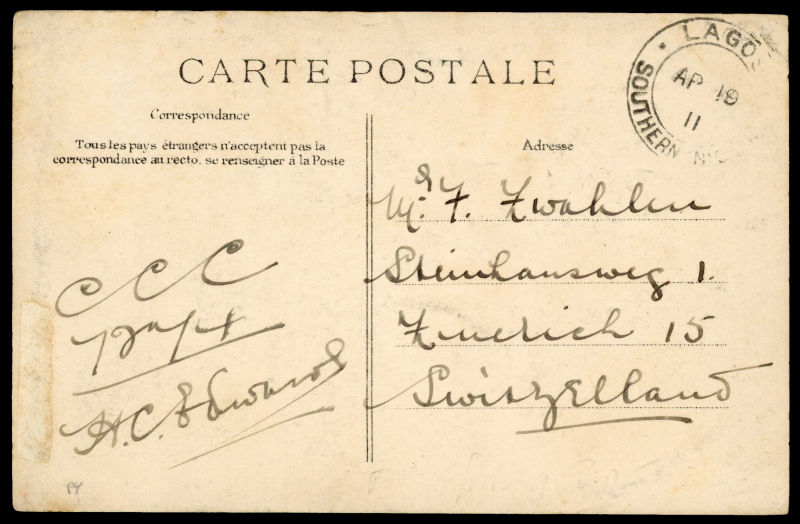 CARTE POSTALE
Correspondance
Tous les pays étrangers n'acceptent pas la
correspondance au recto. se renseigner à la Poste
Adresse
LAGOS
SOUTHERN NI
AP 19
11
Mr. F. Zwahlen
Steinhausweg 1.
Zuerich 15
Switzelland
C C C
H.C. Edwards